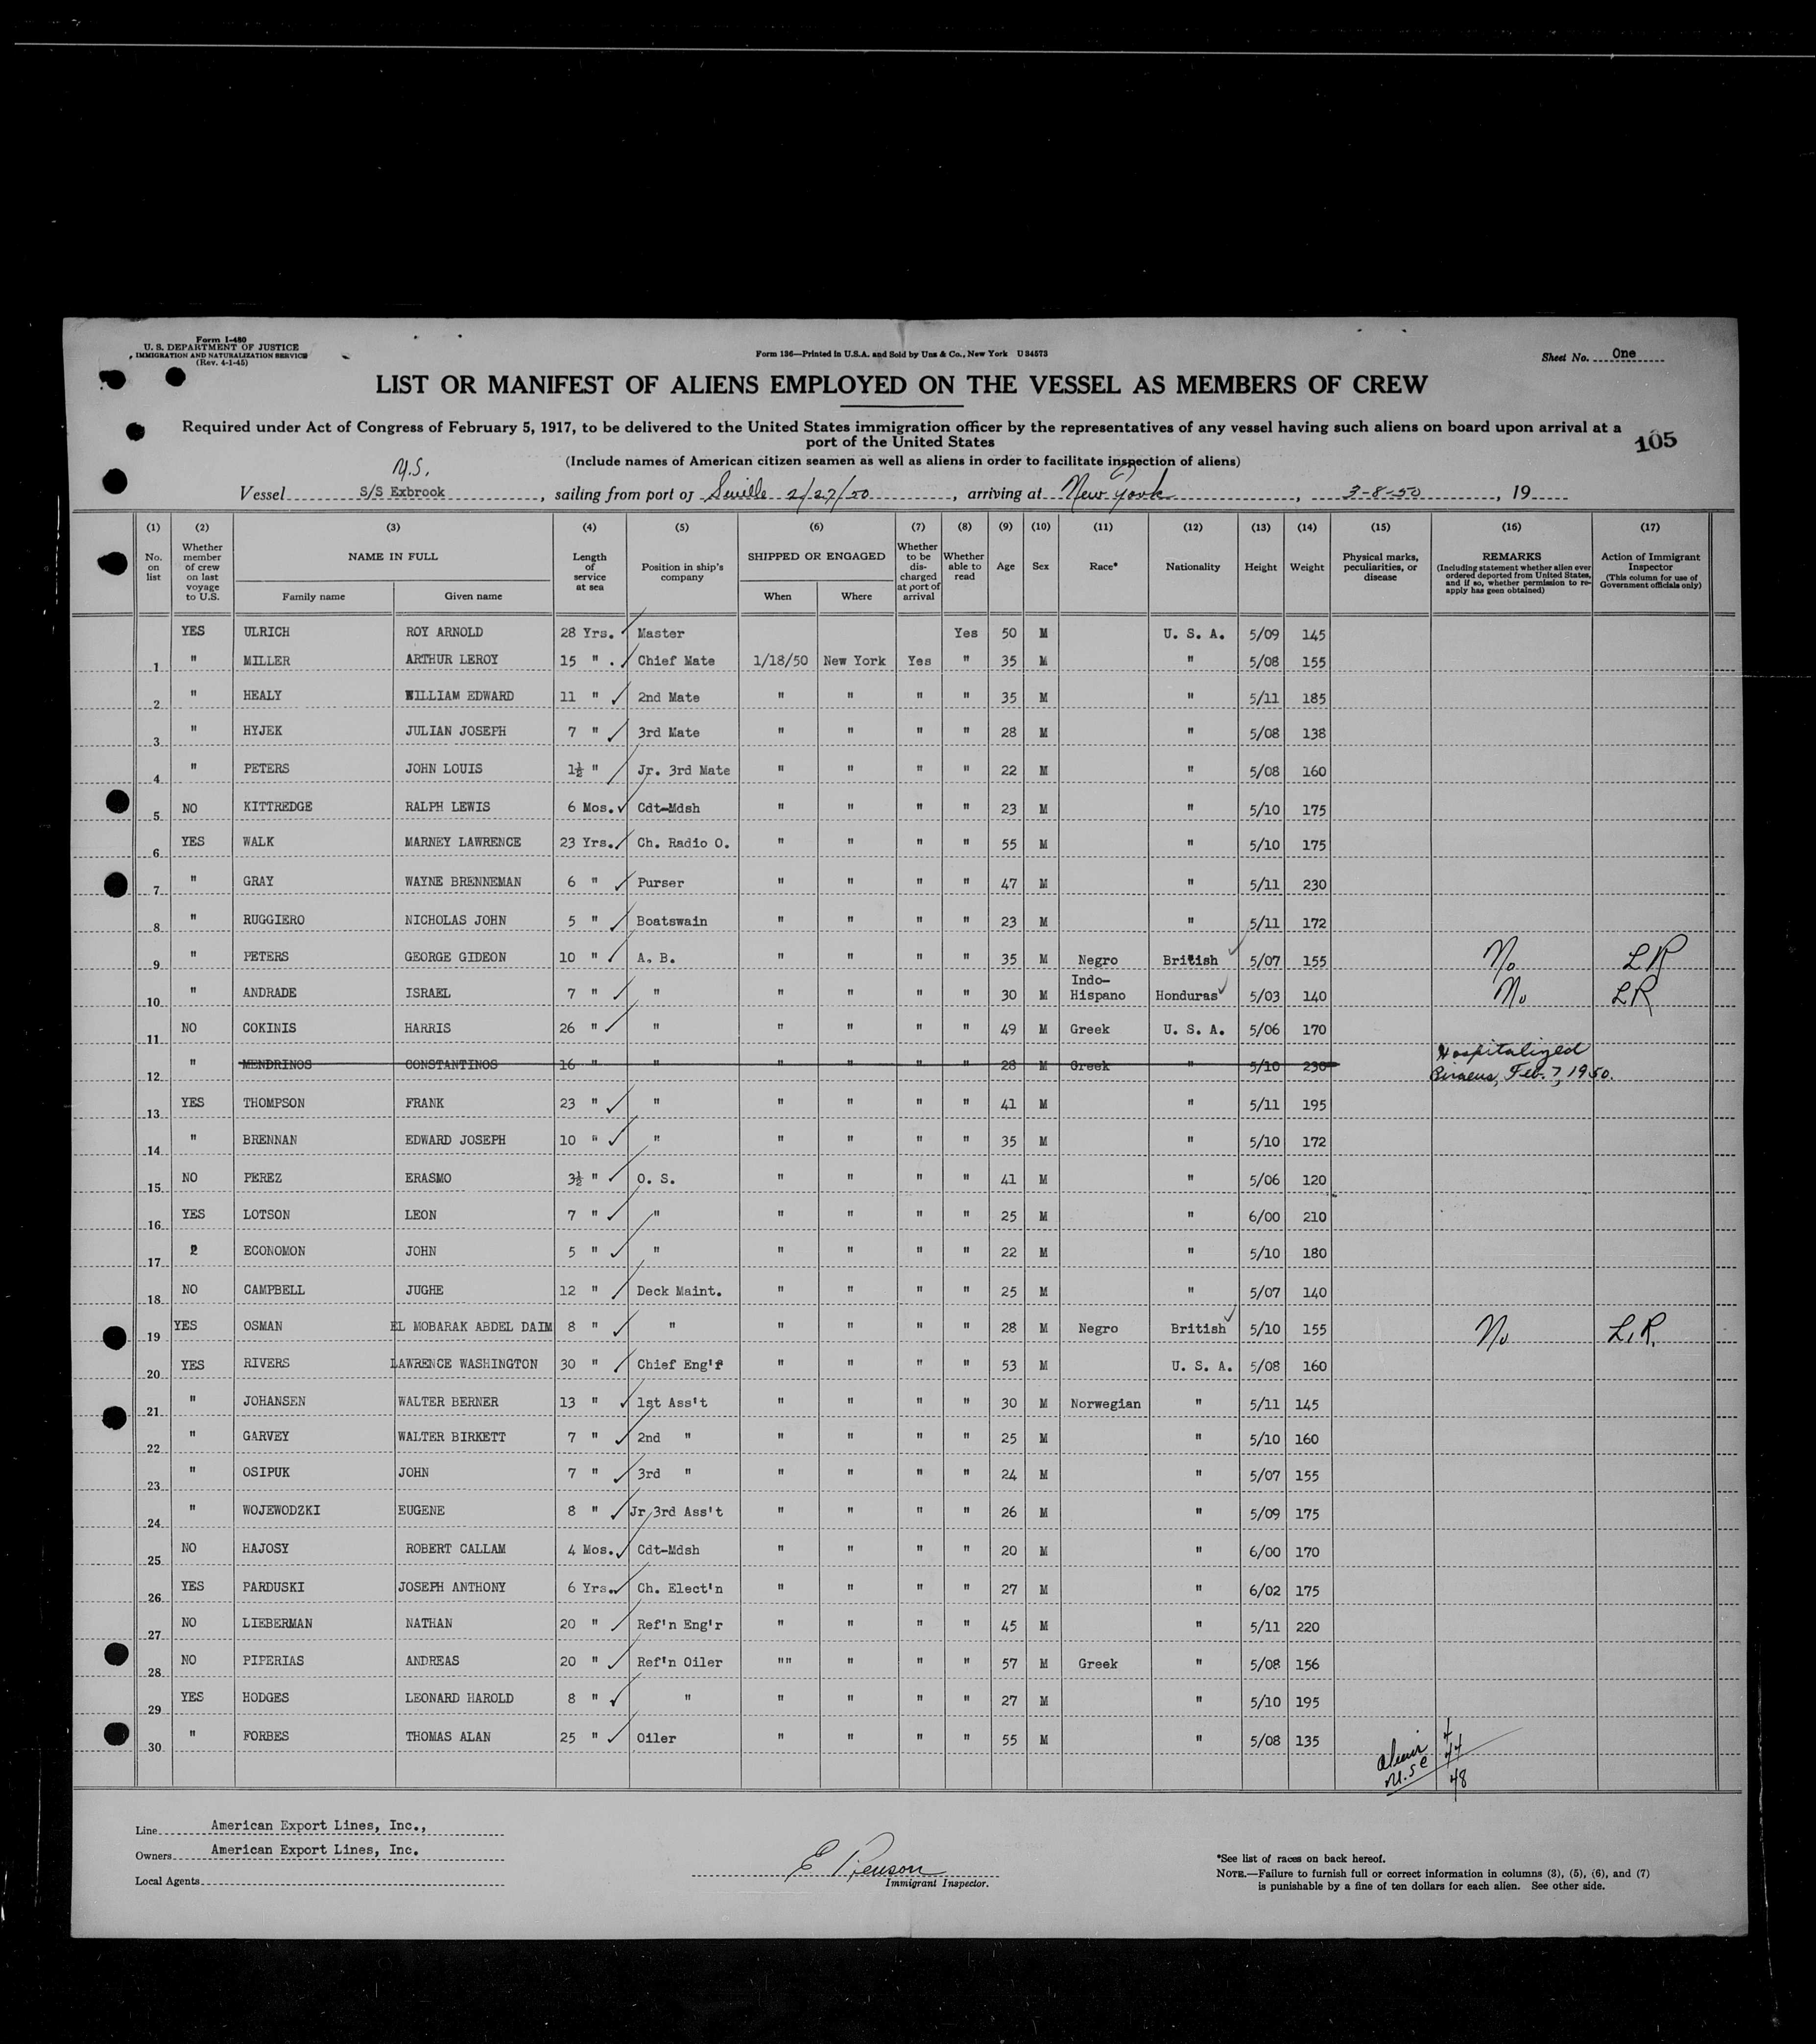 Form I-480
U. S. DEPARTMENT OF JUSTICE
IMMIGRATION AND NATURALIZATION SERVICE
(Rev. 4-1-45)
Form 136—Printed in U.S.A. and Sold by Unz & Co., New York U 34573
Sheet No. One
LIST OR MANIFEST OF ALIENS EMPLOYED ON THE VESSEL AS MEMBERS OF CREW
Required under Act of Congress of February 5, 1917, to be delivered to the United States immigration officer by the representatives of any vessel having such aliens on board upon arrival at a
port of the United States
105
(Include names of American citizen seamen as well as aliens in order to facilitate inspection of aliens)
U.S.
Vessel S/S Exbrook, sailing from port of Seville 2/27/50, arriving at New York, 3-8-50, 19
(1) No. on list (2) Whether member of crew on last voyage to U.S. (3) NAME IN FULL Family name Given name (4) Length of service at sea (5) Position in ship's company (6) SHIPPED OR ENGAGED When Where (7) Whether to be discharged at port of arrival (8) Whether able to read (9) Age (10) Sex (11) Race* (12) Nationality (13) Height (14) Weight (15) Physical marks, peculiarities, or disease (16) REMARKS (Including statement whether alien ever ordered deported from United States, and if so, whether permission to re-apply has geen obtained) (17) Action of Immigrant Inspector (This column for use of Government officials only)
YES ULRICH ROY ARNOLD 28 Yrs. Master Yes 50 M U. S. A. 5/09 145
1 " MILLER ARTHUR LEROY 15 " . Chief Mate 1/18/50 New York Yes " 35 M " 5/08 155
2 " HEALY WILLIAM EDWARD 11 " 2nd Mate " " " " 35 M " 5/11 185
3 " HYJEK JULIAN JOSEPH 7 " 3rd Mate " " " " 28 M " 5/08 138
4 " PETERS JOHN LOUIS 1½ " Jr. 3rd Mate " " " " 22 M " 5/08 160
5 NO KITTREDGE RALPH LEWIS 6 Mos. Cdt-Mdsh " " " " 23 M " 5/10 175
6 YES WALK MARNEY LAWRENCE 23 Yrs. Ch. Radio O. " " " " 55 M " 5/10 175
7 " GRAY WAYNE BRENNEMAN 6 " Purser " " " " 47 M " 5/11 230
8 " RUGGIERO NICHOLAS JOHN 5 " Boatswain " " " " 23 M " 5/11 172
9 " PETERS GEORGE GIDEON 10 " A. B. " " " " 35 M Negro British 5/07 155 No LR
10 " ANDRADE ISRAEL 7 " " " " " " 30 M Indo-Hispano Honduras 5/03 140 No LR
11 NO COKINIS HARRIS 26 " " " " " " 49 M Greek U. S. A. 5/06 170
12 " MENDRINOS CONSTANTINOS 16 " " " " " " 28 M Greek " 5/10 230 Hospitalized Piraeus, Feb. 7, 1950.
13 YES THOMPSON FRANK 23 " " " " " " 41 M " 5/11 195
14 " BRENNAN EDWARD JOSEPH 10 " " " " " " 35 M " 5/10 172
15 NO PEREZ ERASMO 3½ " O. S. " " " " 41 M " 5/06 120
16 YES LOTSON LEON 7 " " " " " " 25 M " 6/00 210
17 ECONOMON JOHN 5 " " " " " " 22 M " 5/10 180
18 NO CAMPBELL JUGHE 12 " Deck Maint. " " " " 25 M " 5/07 140
19 YES OSMAN EL MOBARAK ABDEL DAIM 8 " " " " " " 28 M Negro British 5/10 155 No L.R.
20 YES RIVERS LAWRENCE WASHINGTON 30 " Chief Eng'r " " " " 53 M U. S. A. 5/08 160
21 " JOHANSEN WALTER BERNER 13 " 1st Ass't " " " " 30 M Norwegian " 5/11 145
22 " GARVEY WALTER BIRKETT 7 " 2nd " " " " " 25 M " 5/10 160
23 " OSIPUK JOHN 7 " 3rd " " " " " 24 M " 5/07 155
24 " WOJEWODZKI EUGENE 8 " Jr 3rd Ass't " " " " 26 M " 5/09 175
25 NO HAJOSY ROBERT CALLAM 4 Mos. Cdt-Mdsh " " " " 20 M " 6/00 170
26 YES PARDUSKI JOSEPH ANTHONY 6 Yrs. Ch. Elect'n " " " " 27 M " 6/02 175
27 NO LIEBERMAN NATHAN 20 " Ref'n Eng'r " " " " 45 M " 5/11 220
28 NO PIPERIAS ANDREAS 20 " Ref'n Oiler "" " " " 57 M Greek " 5/08 156
29 YES HODGES LEONARD HAROLD 8 " " " " " " 27 M " 5/10 195
30 " FORBES THOMAS ALAN 25 " Oiler " " " " 55 M " 5/08 135
Alien 4
U.S.C 44
48
Line American Export Lines, Inc.,
Owners American Export Lines, Inc.
Local Agents
E
Immigrant Inspector.
*See list of races on back hereof.
NOTE.—Failure to furnish full or correct information in columns (3), (5), (6), and (7)
is punishable by a fine of ten dollars for each alien. See other side.